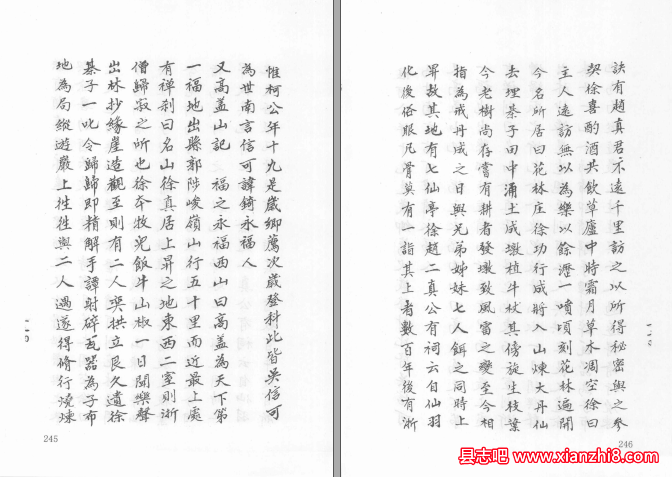 惟柯公年十九是歲鄉薦次歲登科此皆吳信可
為世南言信可諱錡永福人
又高盖山記 福之永福西山曰高盖為天下第
一福地出縣郭陟峻嶺山行五十里而近最上處
有禅刹曰名山徐真居上昇之地東西二室則浙
僧歸寂之所也徐本牧兒飯牛山椒一日聞樂聲
出林抄緣崖造觀至則有二人奕拱立良久遺徐
棊子一叱令歸歸即精解手譚射碎瓦器為子布
地為局縱遊巖上往往與二人遇遂得脩行燒煉
一一〇
245
訣有趙真君不遠千里訪之以所得秘密與之參
契徐喜酌酒共飲草廬中時霜月草木凋空徐曰
主人遠訪無以為樂以餘瀝一噴頃刻花林遍開
今名所居曰花林庄徐功行成將入山煉大丹仙
去埋棊子田中涌土成墩植牛杖其傍旋生枝葉
今老樹尚存嘗有耕者發墩致風雷之變至今相
指為戒丹成之日與兄弟姊妹七人餌之同時上
昇故其地有七仙亭徐趙二真公有祠云自仙羽
化後俗眼凡骨莫有一詣其上者數百年後有浙
246
县志吧 www.xianzhi8.com